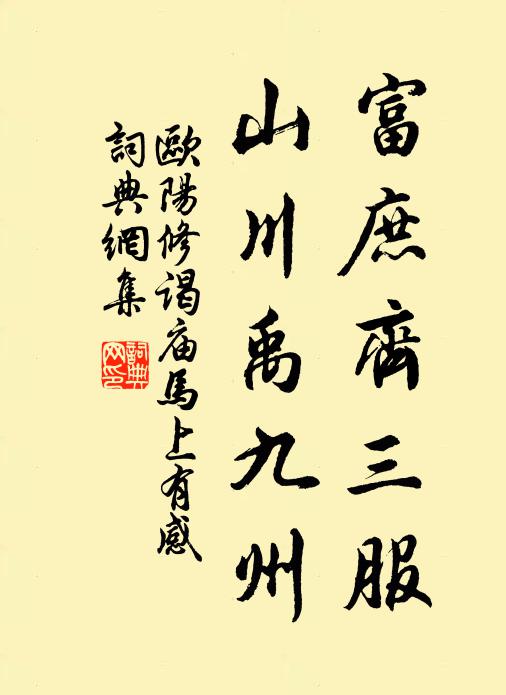 富庶齊三服
山川禹九州
歐陽修謁庙馬上有感
詞典網集
詞典网印